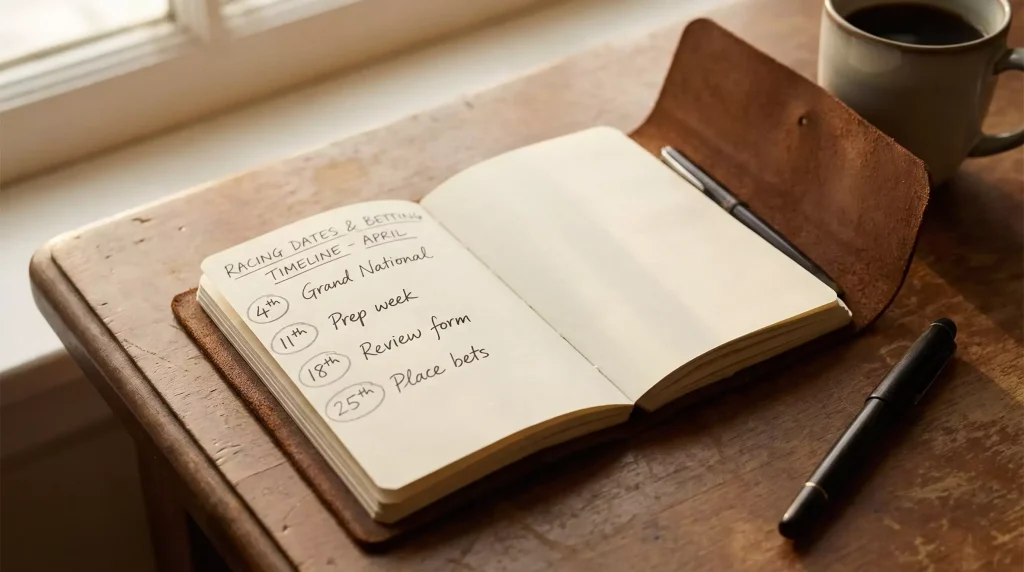 RACING DATES & BETTING
TIMELINE – APRIL
4th Grand National
11th Prep week
18th Review form
25th Place bets